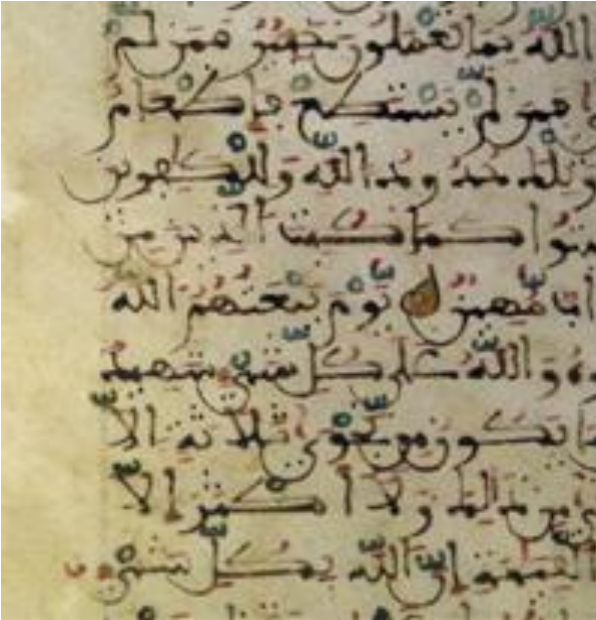 الله بما تعملون خبير فمن لم
ا فمن لم يستطع فإطعام
وتلك حدود الله وللكفرين
بتوا كما كبت الذين من
اب مهين يوم يبعثهم الله
وه والله على كل شيء شهيد
ما يكون من نجوى ثلاثة إلا
من ذلك ولا أكثر إلا
القيمة إن الله بكل شيء